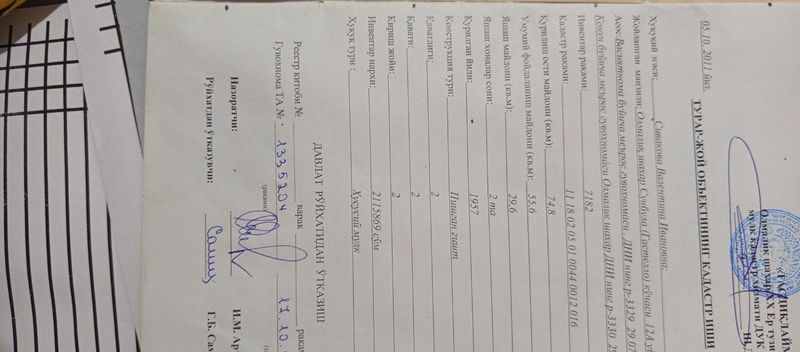 «ТАСДИҚЛАЙМ
Олмалиқ шаҳар ХХ Ер тузи
мулк кадастр хизмати ДУК
05.10. 2011 йил.
ТУРАР-ЖОЙ ОБЪЕКТИНИНГ КАДАСТР ИШИ
Ҳуқуқий эгаси: Сивакова Валентина Ивановна;
Жойлашган манзили: Олмалиқ шаҳар Сунбула (Гастелло) кўчаси 12А у
Асос: Васиятнома бўйича мерос гувоҳномаси ДНИ нинг р-3329 29.07
Қонун бўйича мерос гувоҳномаси Олмалиқ шаҳар ДНИ нинг р-3330 29
Инвентар рақами: 7182
Кадастр рақами: 11 18 02 05 01 0044 0012 016
Қурилиш ости майдони (кв.м): 74,8
Умумий фойдаланиш майдони (кв.м): 55,6
Яшаш майдони (кв.м): 29,6
Яшаш хоналар сони: 2 та
Қурилган йили: 1957
Конструкция тури: Пишган ғишт
Ечатлиги: 2
Қавати: 2
Кириш жойи: 2
Инвентар нархи: 2115869 сўм
Ҳуқуқ тури: Хусусий мулк
ДАВЛАТ РЎЙХАТИДАН ЎТКАЗИШ
Реестр китоби № варақ рақам
Гувоҳнома ТА № 1335204 17.10.
Назоратчи: И.М. Ар
Рўйхатдан ўтказувчи: Г.Б. Сам